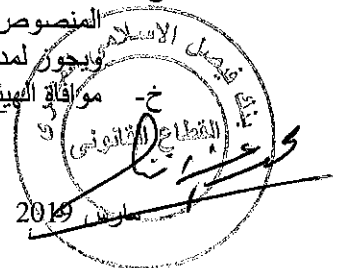 المنصوص
ويجوز لمد
خ- موافاة الهيئ
بنك فيصل الاسلامى
القطاع القانونى
مارس 2019